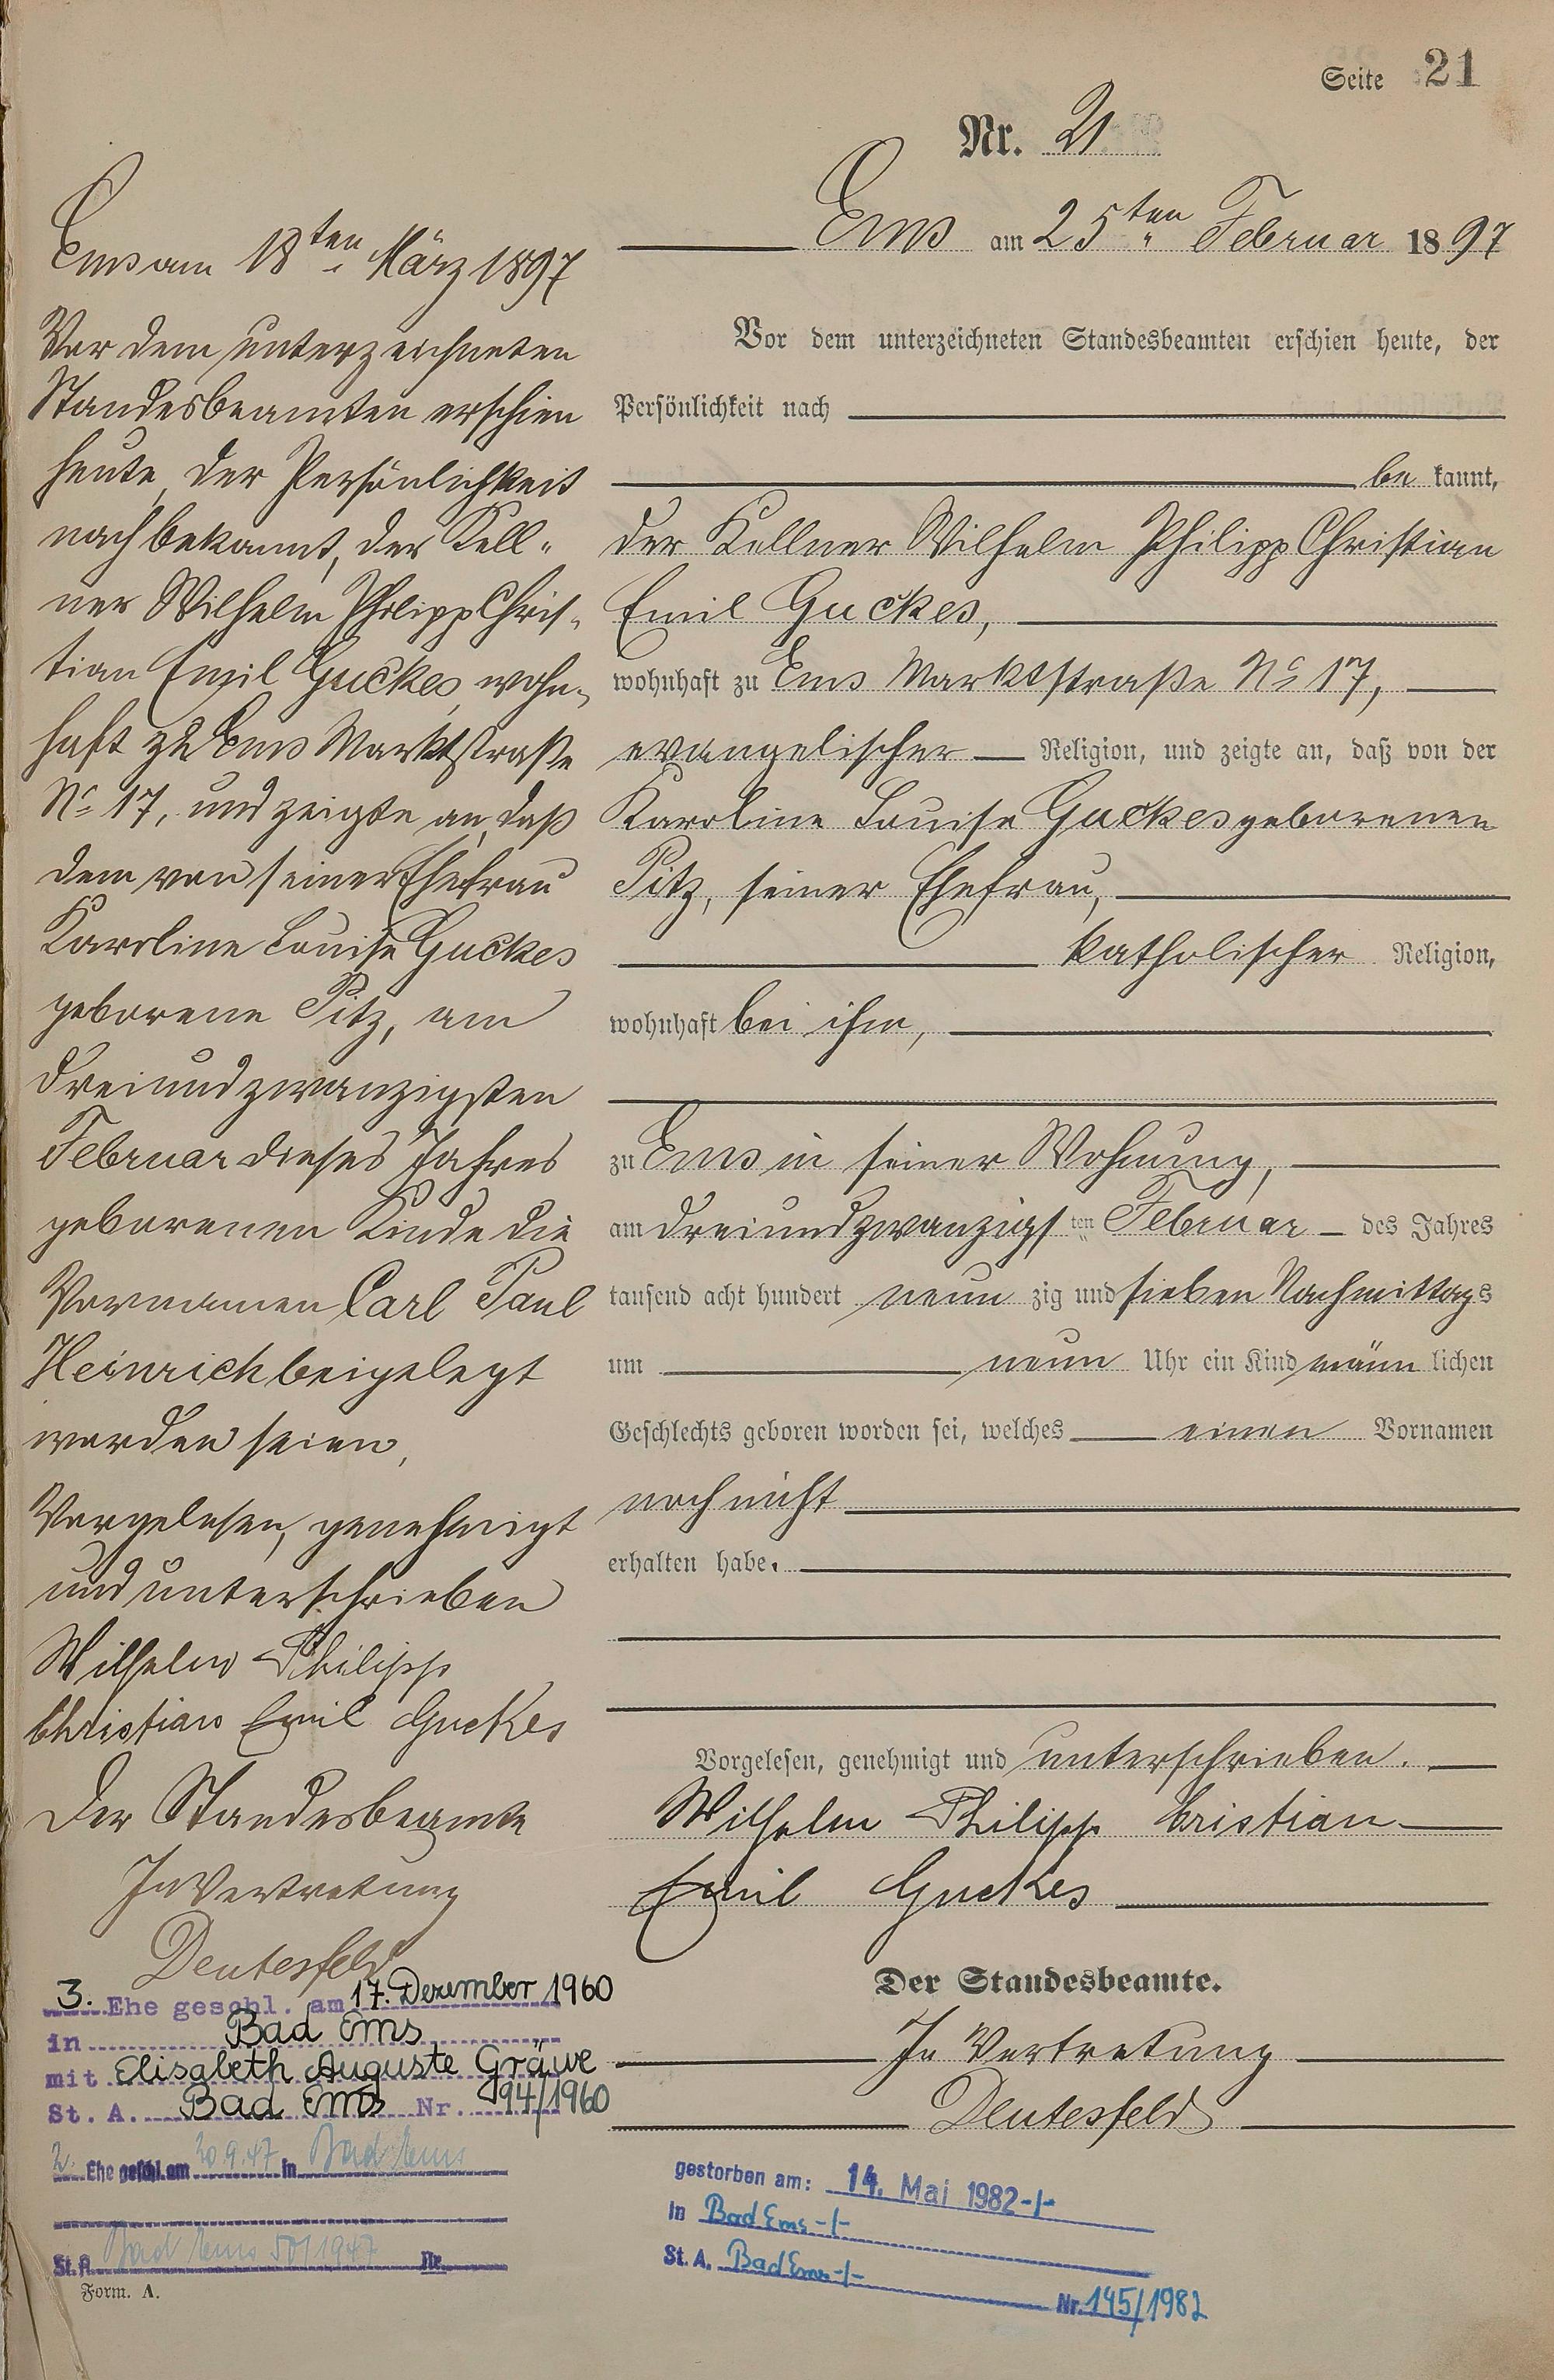 Seite 21
Nr. 21
Ems am 25ten Februar 1897
Vor dem unterzeichneten Standesbeamten erschien heute, der
Persönlichkeit nach
be kannt,
der Kellner Wilhelm Philipp Christian
Emil Guckes,
wohnhaft zu Ems Marktstraße No 17,
evangelischer Religion, und zeigte an, daß von der
Karoline Louise Guckes geborenen
Pitz, seiner Ehefrau,
katholischer Religion,
wohnhaft bei ihm,
zu Ems in seiner Wohnung,
am dreiundzwanzigsten Februar des Jahres
tausend acht hundert neun zig und sieben Nachmittags
um neun Uhr ein Kind männlichen
Geschlechts geboren worden sei, welches einen Vornamen
noch nicht
erhalten habe.
Vorgelesen, genehmigt und unterschrieben.
Wilhelm Philipp Cristian
Emil Guckes
Der Standesbeamte.
In Vertretung
Deutesfeld
gestorben am: 14. Mai 1982-/-
in Bad Ems-/-
St. A. Bad Ems-/-
Nr. 145/1982
Ems am 18ten März 1897
Vor dem unterzeichneten
Standesbeamten erschien
heute, der Persönlichkeit
nach bekannt, der Kell-
ner Wilhelm Philipp Chris-
tian Emil Guckes, wohn-
haft zu Ems Marktstraße
No 17, und zeigte an, daß
dem von seiner Ehefrau
Karoline Louise Guckes
geborene Pitz, am
dreiundzwanzigsten
Februar dieses Jahres
geborenen Kinde die
Vornamen Carl Paul
Heinrich beigelegt
worden seien,
Vorgelesen, genehmigt
und unterschrieben
Wilhelm Philipp
Christian Emil Guckes
Der Standesbeamte
In Vertretung
Deutesfeld
3. Ehe geschl. am 17. Dezember 1960
in Bad Ems
mit Elisabeth Auguste Gräwe
St. A. Bad Ems Nr. 94/1960
2. Ehe geschl. am 20.9.47 in Bad Ems
St. A. Bad Ems 50/1947 Nr.
Form. A.